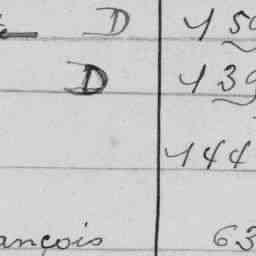 D 150
D 139
144
ançois 63